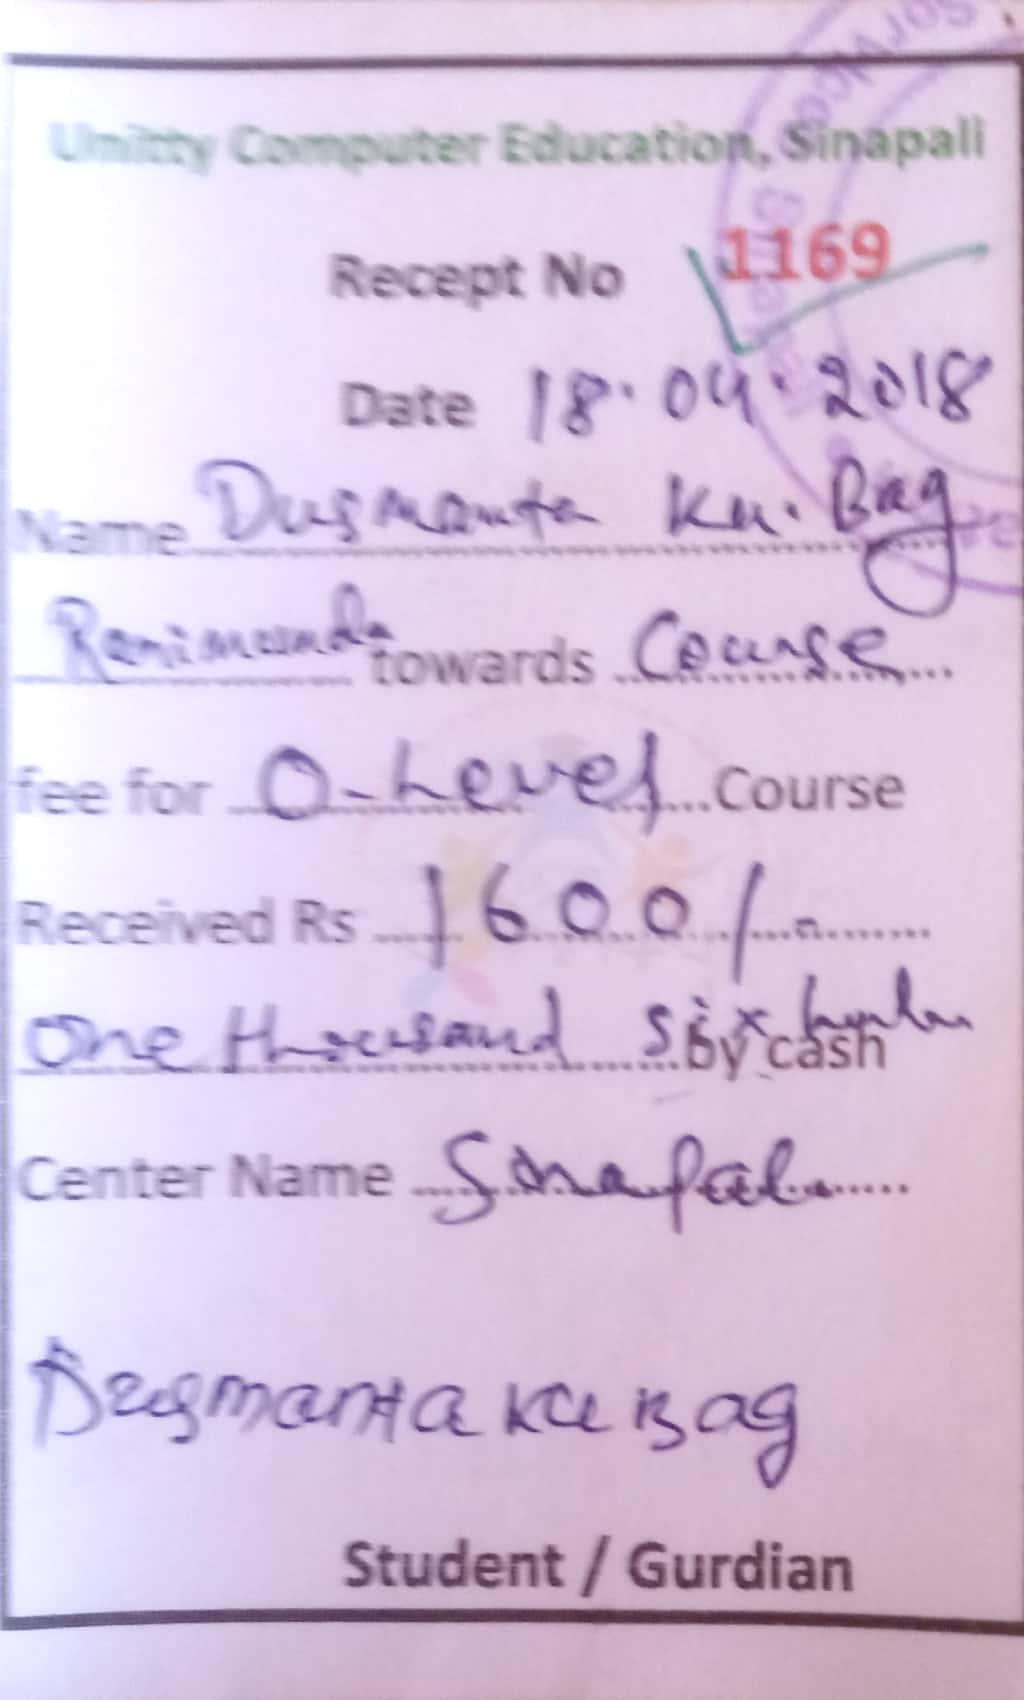 Unitty Computer Education, Sinapali
Recept No 1169
Date 18.04.2018
Name Dusmanta Ku. Bag
Ranimunda towards Course
fee for O-Level Course
Received Rs 1600/-
One thousand six by cash
Center Name Sinapali
Dusmanta Ku Bag
Student / Gurdian